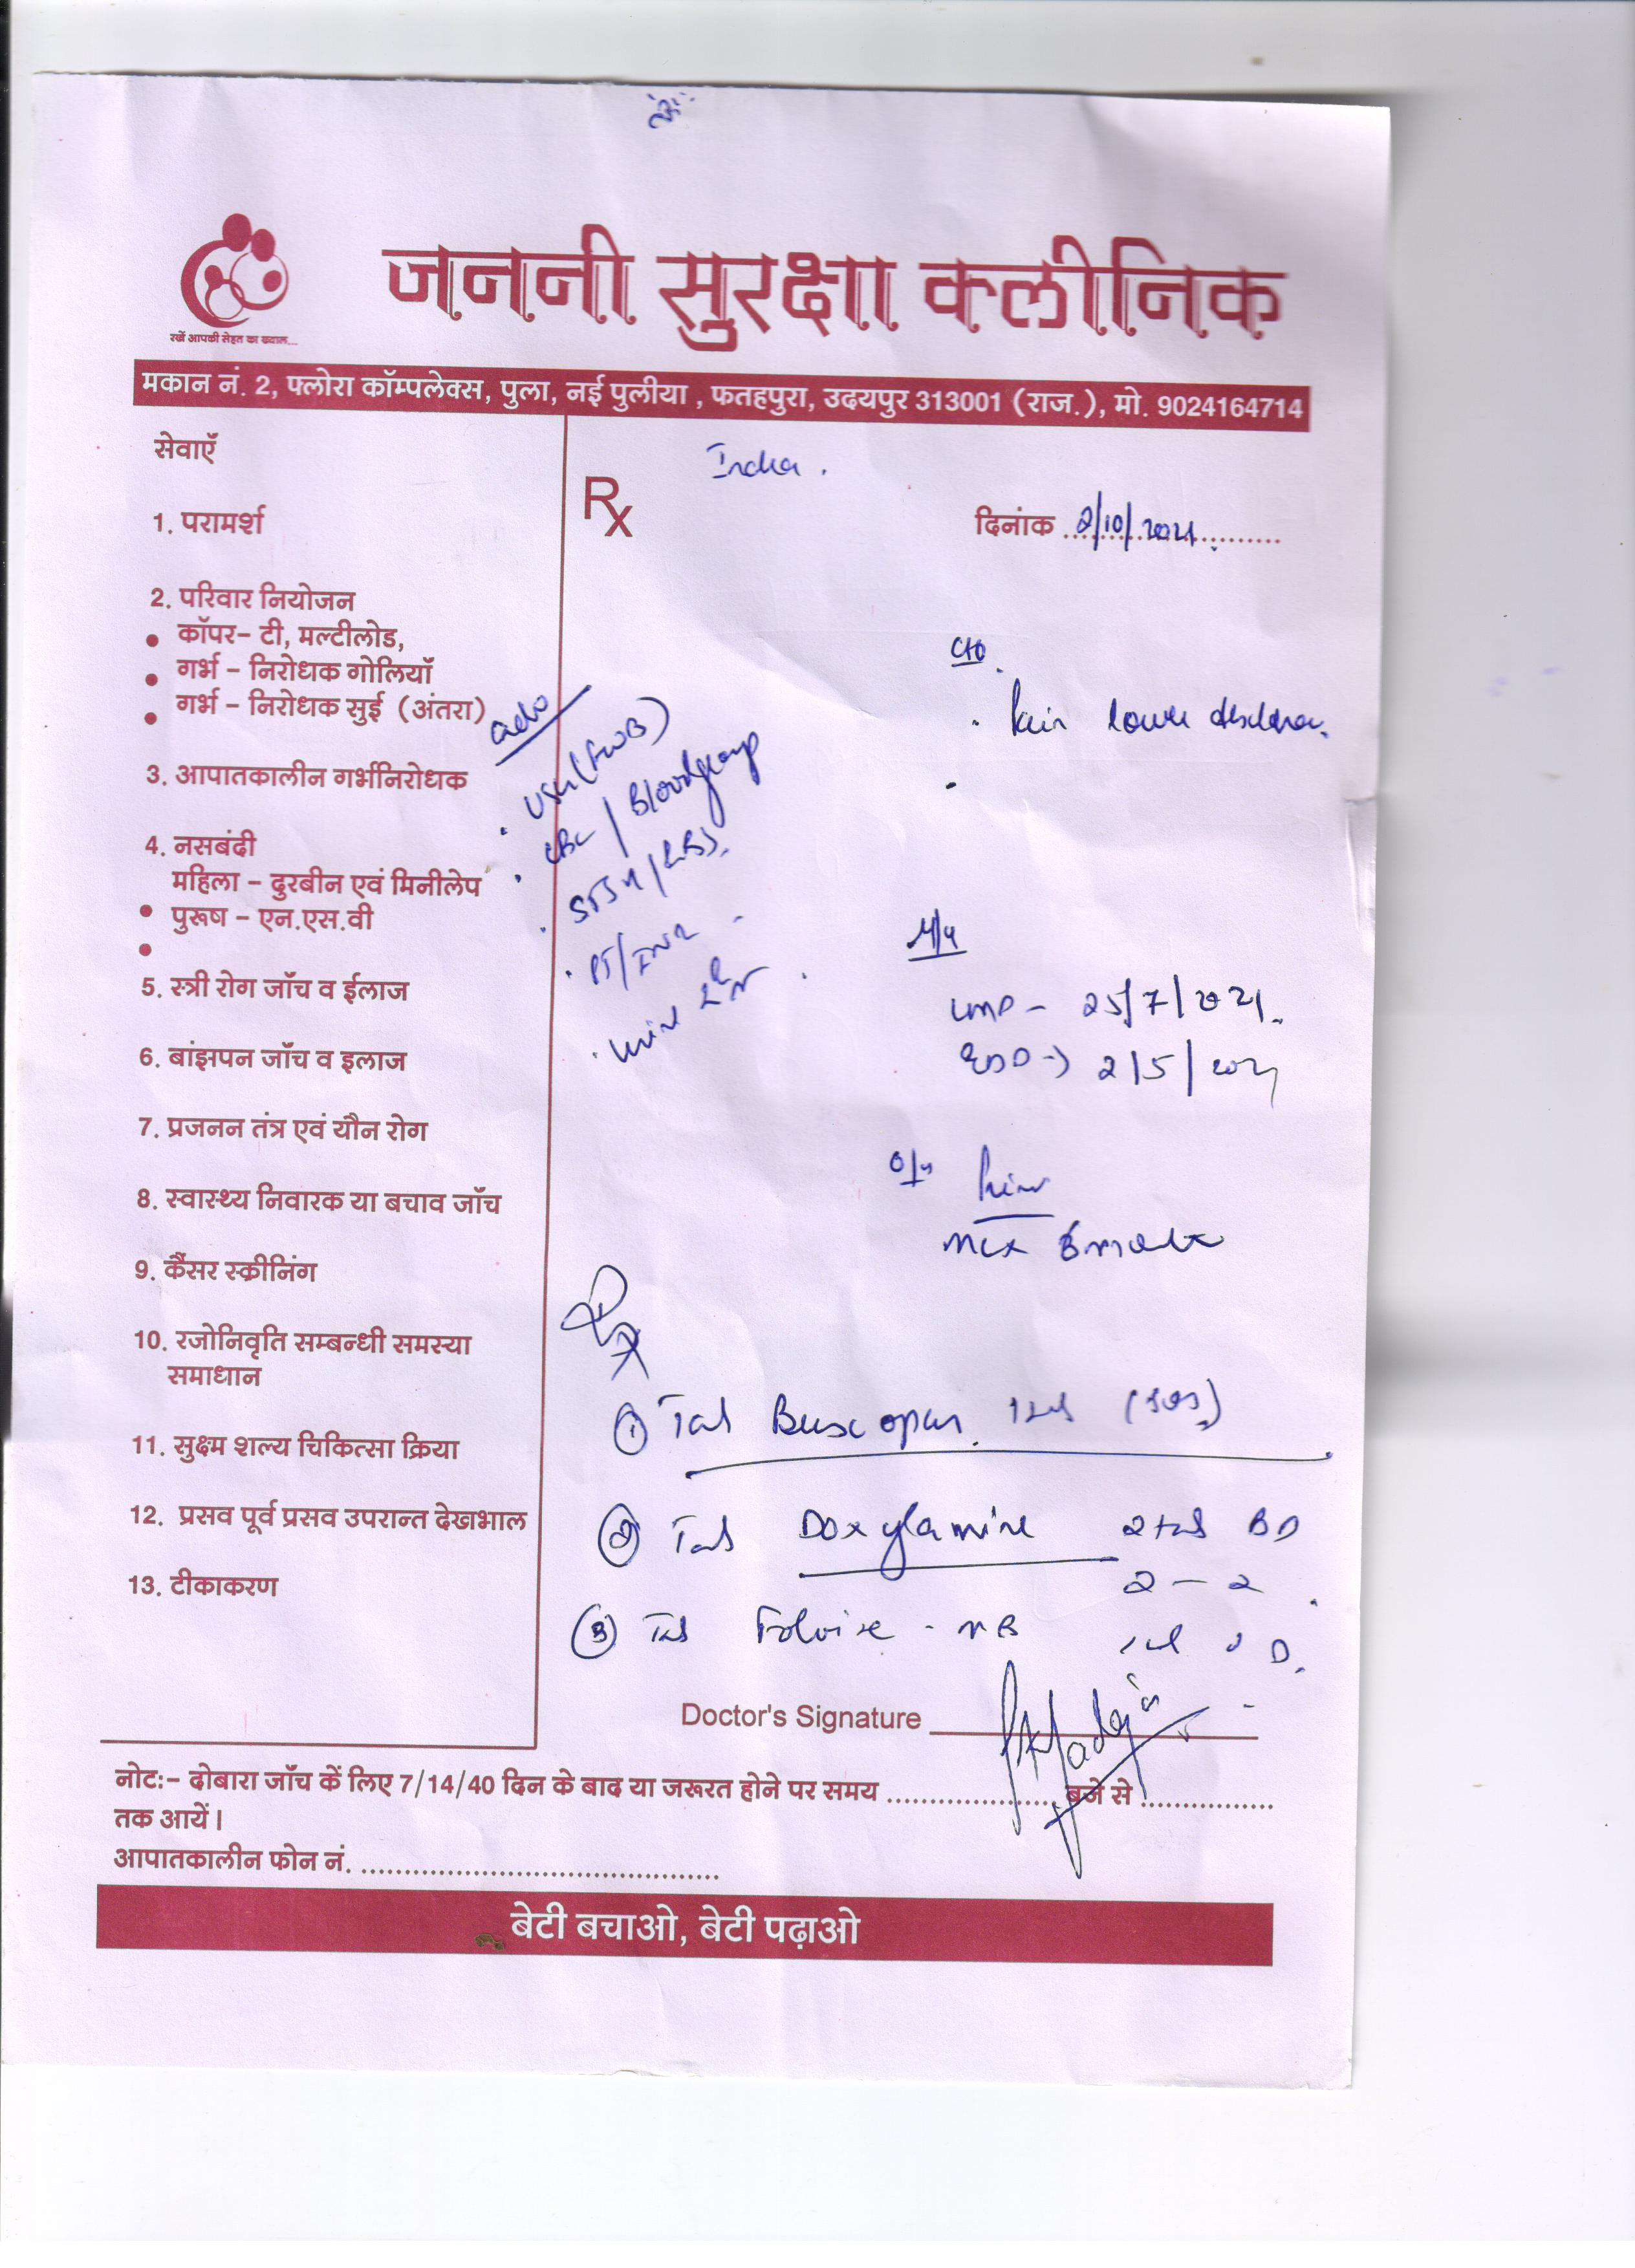 जननी सुरक्षा क्लीनिक
रखें आपकी सेहत का ख्याल...
मकान नं. 2, फ्लोरा कॉम्पलेक्स, पुला, नई पुलीया , फतहपुरा, उदयपुर 313001 (राज.), मो. 9024164714
सेवाएँ
India .
Rx
दिनांक 2/10/2021
1. परामर्श
2. परिवार नियोजन
• कॉपर– टी, मल्टीलोड,
• गर्भ – निरोधक गोलियाँ
• गर्भ – निरोधक सुई (अंतरा)
3. आपातकालीन गर्भनिरोधक
4. नसबंदी
महिला – दुरबीन एवं मिनीलेप
• पुरूष – एन.एस.वी
5. स्त्री रोग जाँच व ईलाज
6. बांझपन जाँच व इलाज
7. प्रजनन तंत्र एवं यौन रोग
8. स्वास्थ्य निवारक या बचाव जाँच
9. कैंसर स्क्रीनिंग
10. रजोनिवृति सम्बन्धी समस्या
समाधान
11. सुक्ष्म शल्य चिकित्सा क्रिया
12. प्रसव पूर्व प्रसव उपरान्त देखभाल
13. टीकाकरण
adv
CBC / Bloodgroup
PT/INR
Urine
C/o
Pain lower
LMP – 25/7/2021
EDD → 2/5/
① Tab Buscopan 1tab (SOS)
② Tab Doxylamine 2tab BD
2 – 2
③ Tab Folvite - MB 1tab OD.
Doctor's Signature
नोटः– दोबारा जाँच कें लिए 7/14/40 दिन के बाद या जरूरत होने पर समय .................... बजे से ................
तक आयें।
आपातकालीन फोन नं. ..........................................
बेटी बचाओ, बेटी पढ़ाओ